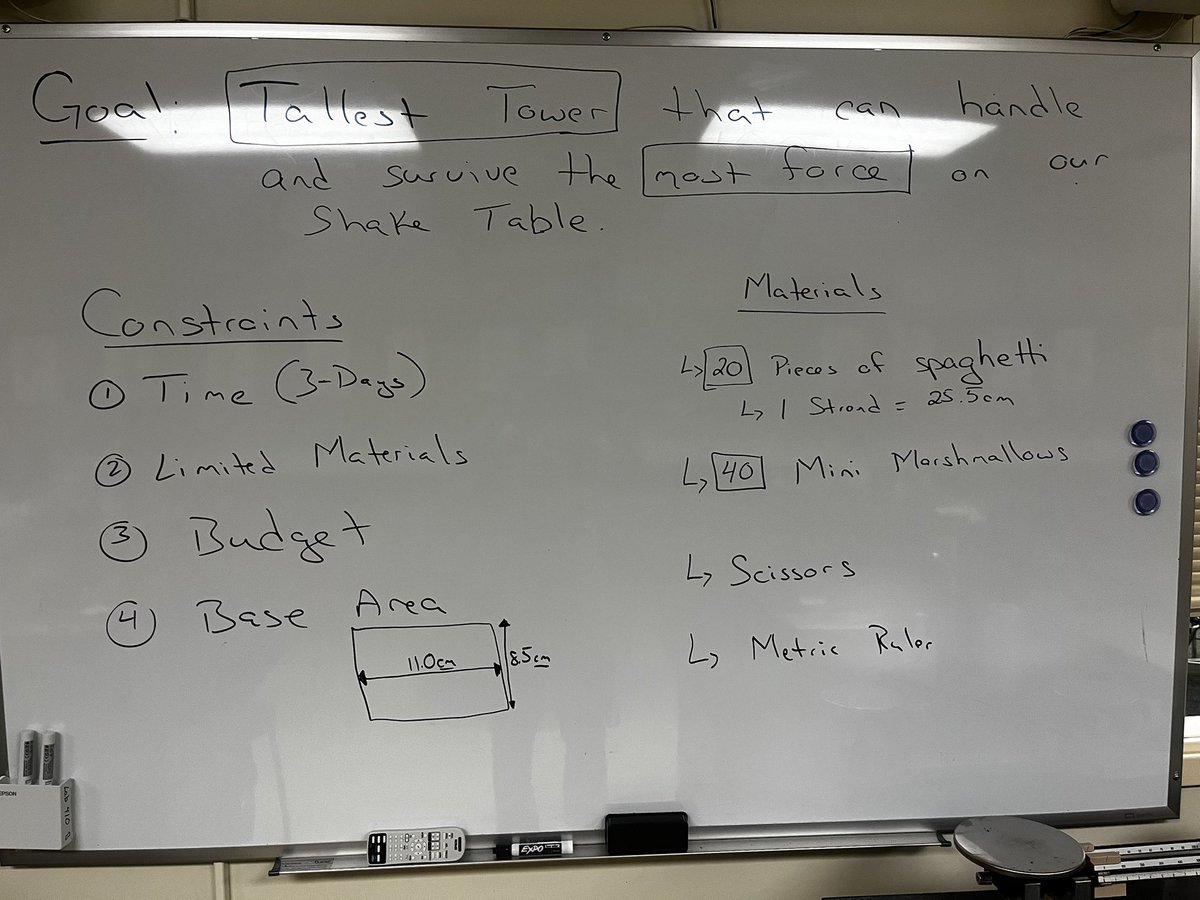 Goal: Tallest Tower that can handle
and survive the most force on our
Shake Table.
Constraints
① Time (3-Days)
② Limited Materials
③ Budget
④ Base Area
11.0cm
8.5cm
Materials
↳ 20 Pieces of spaghetti
↳ 1 Strand = 25.5cm
↳ 40 Mini Marshmallows
↳ Scissors
↳ Metric Ruler
EPSON
Lab 410
EXPO